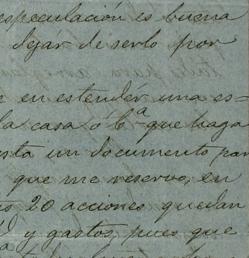 especulación es buena
dejar de serlo por
en estender una es-
la casa ó bª que haga
un documento par
que me reserve, en
20 acciones quedan
y gastos, pues que